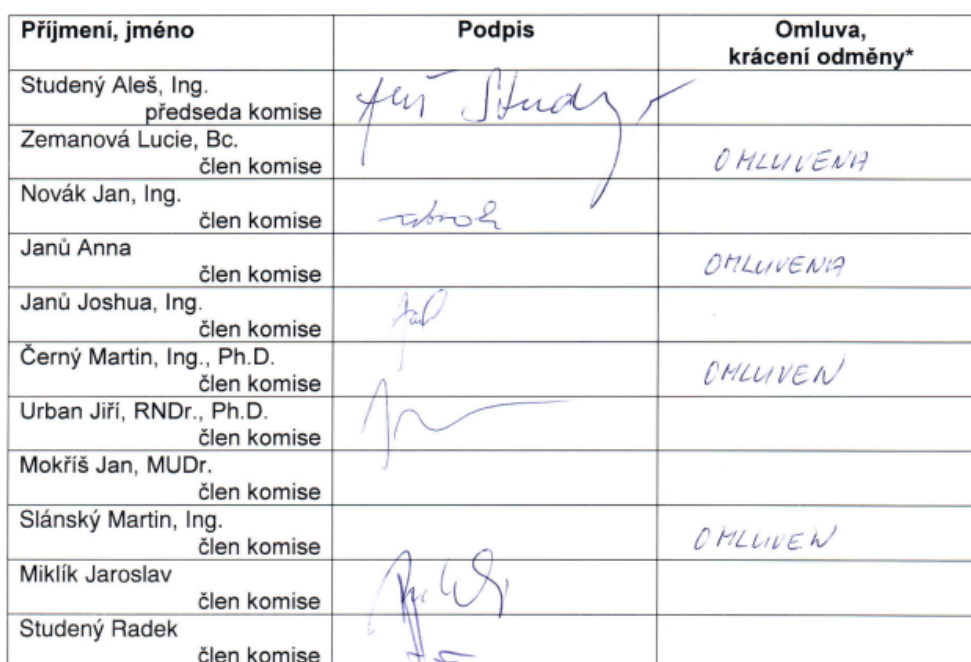 Příjmení, jméno Podpis Omluva,
krácení odměny*
Studený Aleš, Ing.
předseda komise
Aleš Studený
Zemanová Lucie, Bc.
člen komise
OMLUVENA
Novák Jan, Ing.
člen komise
Janů Anna
člen komise
OMLUVENA
Janů Joshua, Ing.
člen komise
Černý Martin, Ing., Ph.D.
člen komise
OMLUVEN
Urban Jiří, RNDr., Ph.D.
člen komise
Mokříš Jan, MUDr.
člen komise
Slánský Martin, Ing.
člen komise
OMLUVEN
Miklík Jaroslav
člen komise
Studený Radek
člen komise